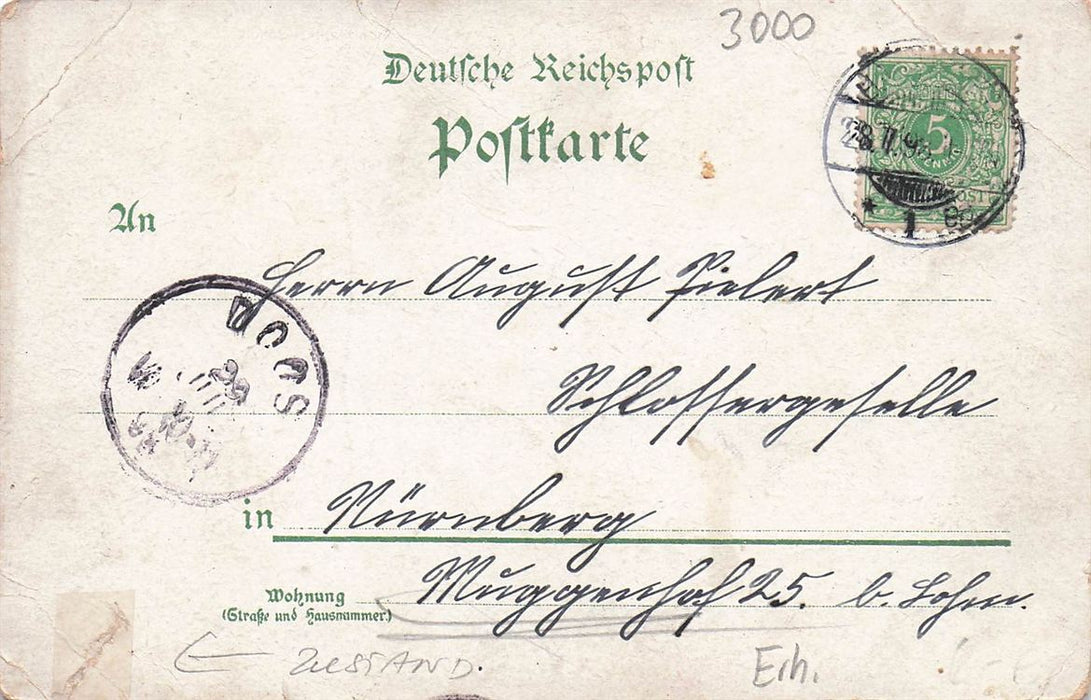 3000
Deutsche Reichspost
Postkarte
5
28.11.98.
* 1
An
Herrn August Pielert
Schlossergeselle
in Nürnberg
Wohnung
(Straße und Hausnummer.)
Muggenhof 25. b. Lohm.
← ZUSTAND.
Erh.